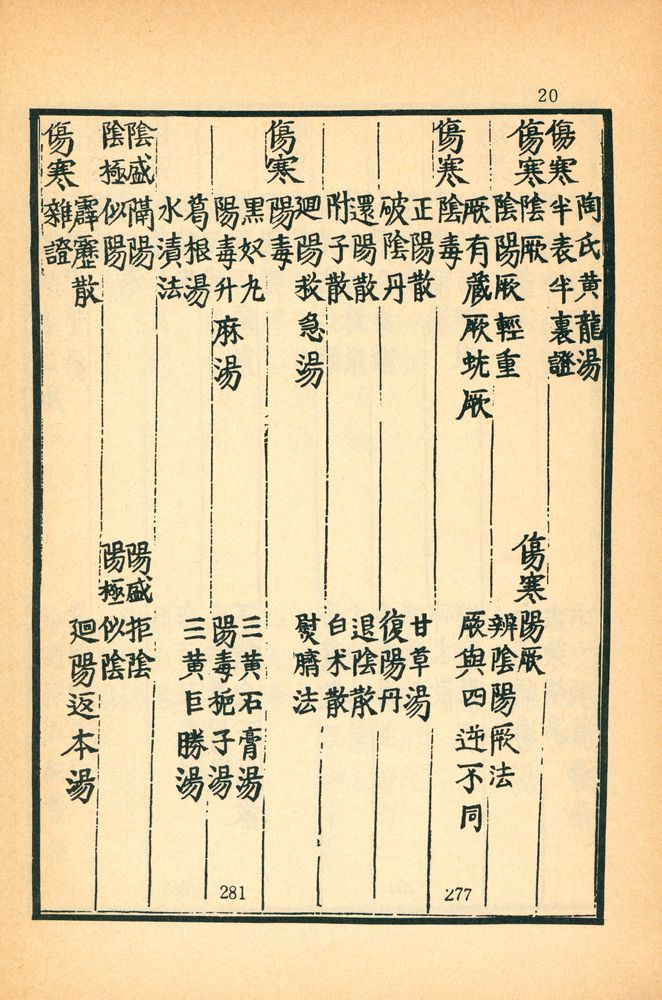 20
陶氏黄龍湯
傷寒半表半裏證
傷寒陰厥
傷寒陽厥
陰陽厥輕重
辨陰陽厥法
厥有藏厥蚘厥
厥與四逆不同
傷寒陰毒
277
正陽散
甘草湯
破陰丹
復陽丹
還陽散
退陰散
附子散
白术散
廻陽救急湯
熨臍法
傷寒陽毒
黑奴丸
三黄石膏湯
陽毒升麻湯
陽毒梔子湯
281
葛根湯
三黄巨勝湯
水漬法
陰盛隔陽
陽盛拒陰
陰極似陽
陽極似陰
霹靂散
廻陽返本湯
傷寒雜證